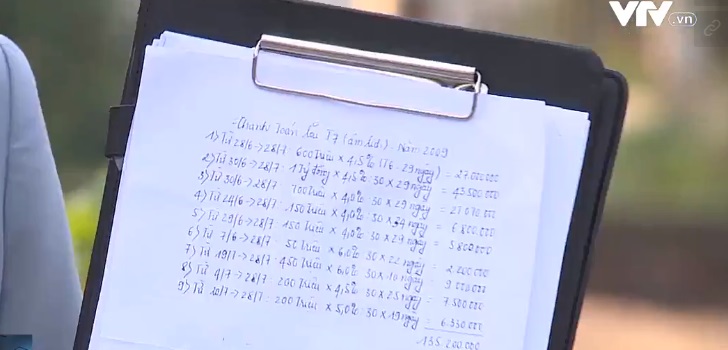 VTV.vn
Thanh Toán lãi T7 (âm lịch). Năm 2009
1) Từ 28/6 → 28/7: 600 triệu × 4,5% (T6: 29 ngày) = 27.000.000
2) Từ 30/6 → 28/7: 1 tỷ đồng × 4,5% : 30 × 29 ngày = 43.500.000
3) Từ 30/6 → 28/7: 700 triệu × 4,0% : 30 × 29 ngày =
4) Từ 24/6 → 28/7: 150 triệu × 4,0% : 30 × 34 ngày = 6.800.000
5) Từ 29/6 → 28/7: 150 triệu × 4,0% : 30 × 29 ngày = 5.800.000
6) Từ 7/6 → 28/7: 50 triệu × 6,0% : 30 × 22 ngày = 2.200.000
7) Từ 19/7 → 28/7: 450 triệu × 6,0% : 30 × 10 ngày = 9.000.000
8) Từ 4/7 → 28/7: 200 triệu × 4,5% : 30 × 25 ngày = 7.500.000
9) Từ 10/7 → 28/7: 200 triệu × 5,0% : 30 × 19 ngày = 6.350.000
135.200.000